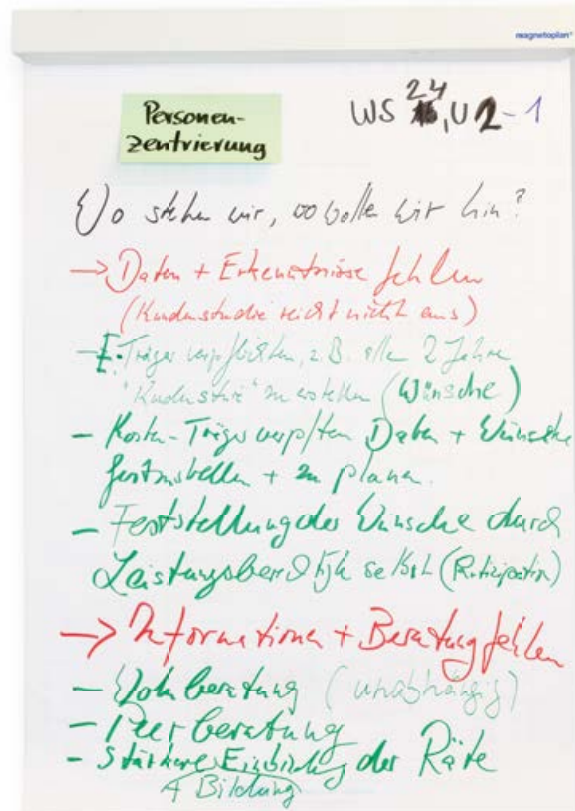 magnetoplan®
Personen-
zentrierung
WS 24, U2-1
Wo stehen wir, wo wollen wir hin?
→ Daten + Erkenntnisse fehlen
(Kundenstudie reicht nicht aus)
- Träger verpflichten, z.B. allen 2 Jahre
"Kundenstudie" zu erstellen (Wünsche)
- Kosten-Träger verpflten Daten + Wünsche
festzustellen + zu planen.
- Feststellung der Wünsche durch
Leistungsberechtigte selbst (Partizipation)
→ Informationen + Beratung fehlen
- Wohnberatung (unabhängig)
- Peerberatung
- Stärkere Einbindung der Räte
+ Bildung